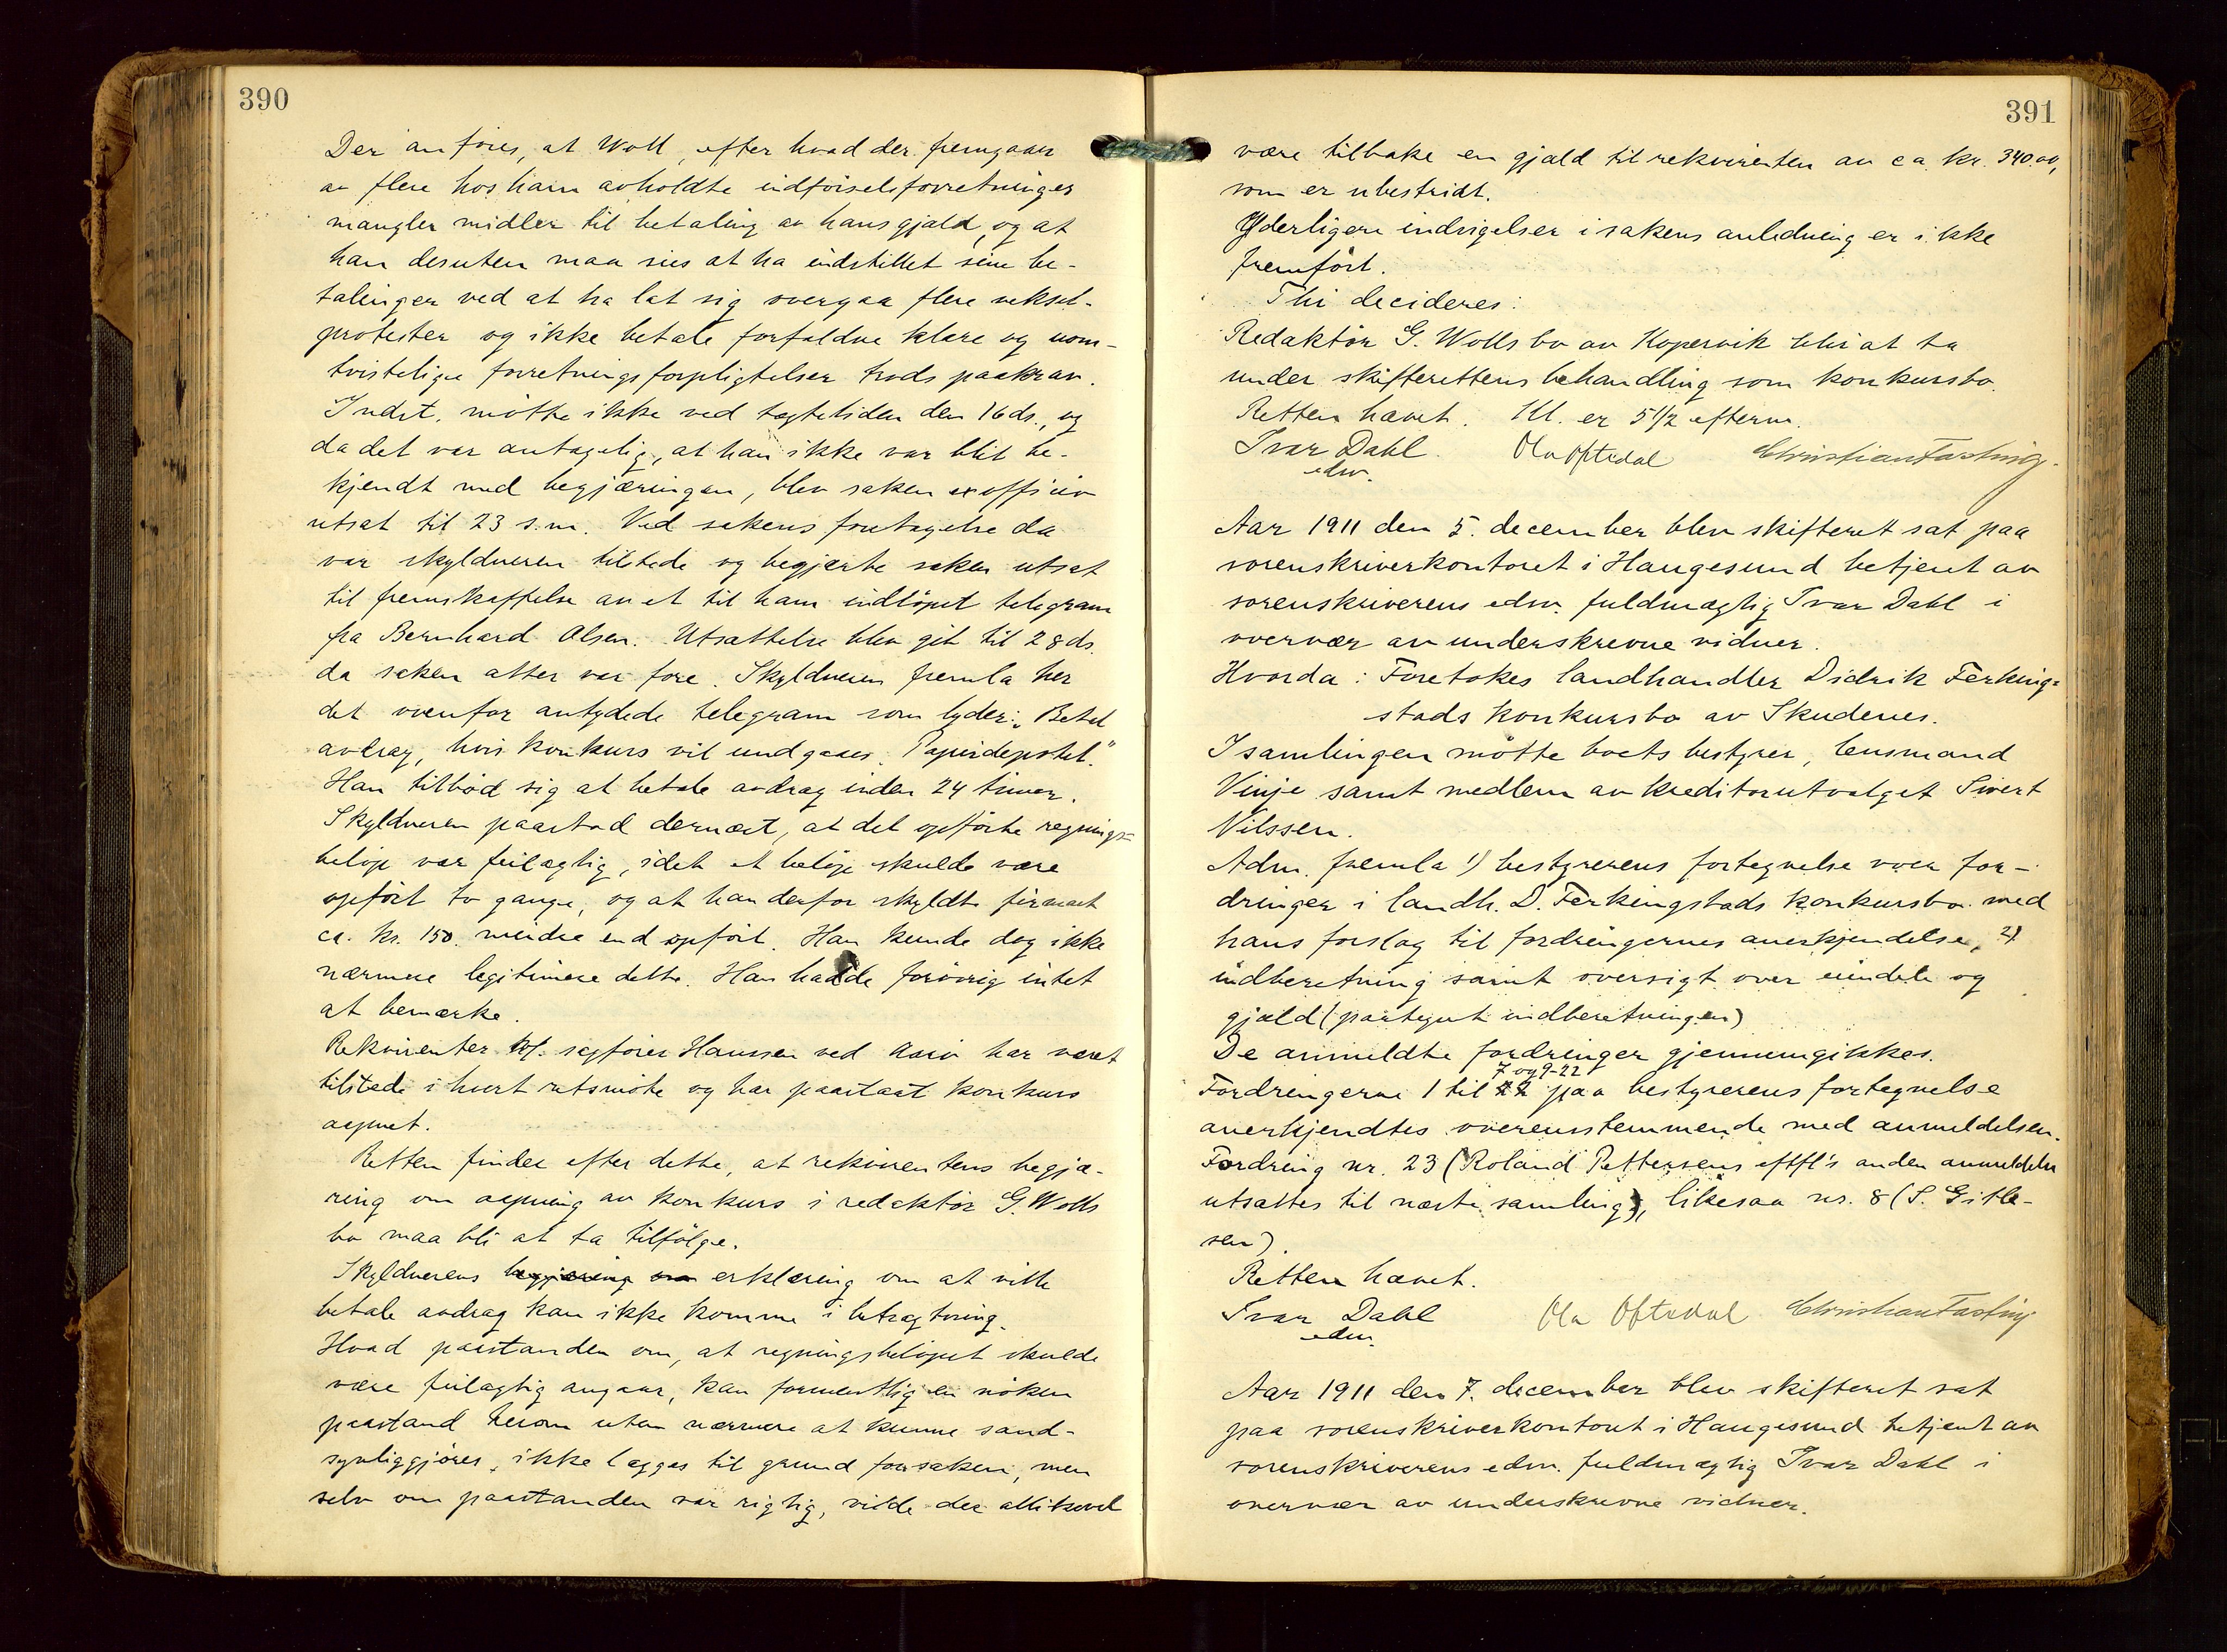 390
Der anføres, at Woll, efter hvad der fremgaar
av flere hos ham avholdte indførselsforretninger
mangler midler til betaling av hans gjæld, og at
han desuten maa sies at ha indstillet sine be-
talinger ved at ha lat sig overgaa flere veksel-
protester og ikke betale forfaldne klare og uom-
tvistelige forretningsforpligtelser trods paakrav.
Indst. møtte ikke ved tægtetiden den 16 ds., og
da det var antagelig, at han ikke var blit be-
kjendt med begjæringen, blev saken ex officio
utsat til 23 s.m. Ved sakens foretagelse da
var skyldneren tilstede og begjærte saken utsat
til fremskaffelse av et til ham indløpet telegram
fra Bernhard Olsen. Utsættelse blev git til 28 ds.
da saken atter var fore. Skyldneren fremla her
det ovenfor antydede telegram som lyder: "Betal
avdrag, hvis konkurs vil undgaaes. Papirdepotet."
Han tilbød sig at betale avdrag inden 24 timer.
Skyldneren paastod dernæst, at det opførte regnings=
beløp var feilagtig, idet et beløp skulde være
opført to gange, og at han derfor skyldte firmaet
ca. kr. 150. mindre end opført. Han kunde dog ikke
nærmere legitimere dette. Han hadde forøvrig intet
at bemerke.
Rekvirenten sakfører Hanssen ved har været
tilstede i hvert retsmøte og har paastaat konkurs
aapnet.
Retten finder efter dette, at rekvirentens begjæ-
ring om aapning av konkurs i redaktør G. Wolls
bo maa bli at ta tilfølge.
Skyldnerens begjæring om erklæring om at ville
betale avdrag kan ikke komme i betragtning.
Hvad paastanden om, at regningsbeløpet skulde
være feilagtig angaar, kan formentlig en nøken
paastand herom uten nærmere at kunne sand-
synliggjøres, ikke lægges til grund for saken, men
selv om paastanden var rigtig, vilde der allikevel
391
være tilbake en gjæld til rekvirenten av ca. kr. 340.00,
som er ubestridt.
Yderligere indsigelser i sakens anledning er ikke
fremført.
Thi decideres:
Redaktør G. Wolls bo av Kopervik blir at ta
under skifterettens behandling som konkursbo.
Retten hævet. Kl. er 5 1/2 efterm.
Ivar Dahl Ola Oftedal Christian Fasting
edsv.
Aar 1911 den 5. december blev skifteret sat paa
sorenskriverkontoret i Haugesund betjent av
sorenskriverens edsv. fuldmægtig Ivar Dahl i
overvær av underskrevne vidner.
Hvorda: Foretokes landhandler Didrik Ferking=
stads konkursbo av Skudenes.
I samlingen møtte boets bestyrer, lensmand
Vinje samt medlem av kreditorutvalget Sivert
Nilssen.
Adm. fremla 1) bestyrerens fortegnelse over for-
dringer i landh. D. Ferkingstads konkursbo med
hans forslag til fordringernes anerkjendelse, 2)
indberetning samt oversigt over eiendele og
gjæld (paategnet indberetningen)
De anmeldte fordringer gjennemgikkes.
7 og 9-22
Fordringerne 1 til 22 paa bestyrerens fortegnelse
anerkjendtes overensstemmende med anmeldelsen.
Fordring nr. 23 (Roland Pettersens eftfl's anden anmeldelse
utsattes til næste samling), likesaa nr. 8 (S. Gitle-
sen).
Retten hævet.
Ivar Dahl Ola Oftedal Christian Fasting
edsv.
Aar 1911 den 7. december blev skifteret sat
paa sorenskriverkontoret i Haugesund betjent av
sorenskriverens edsv. fuldmægtig Ivar Dahl i
overvær av underskrevne vidner.